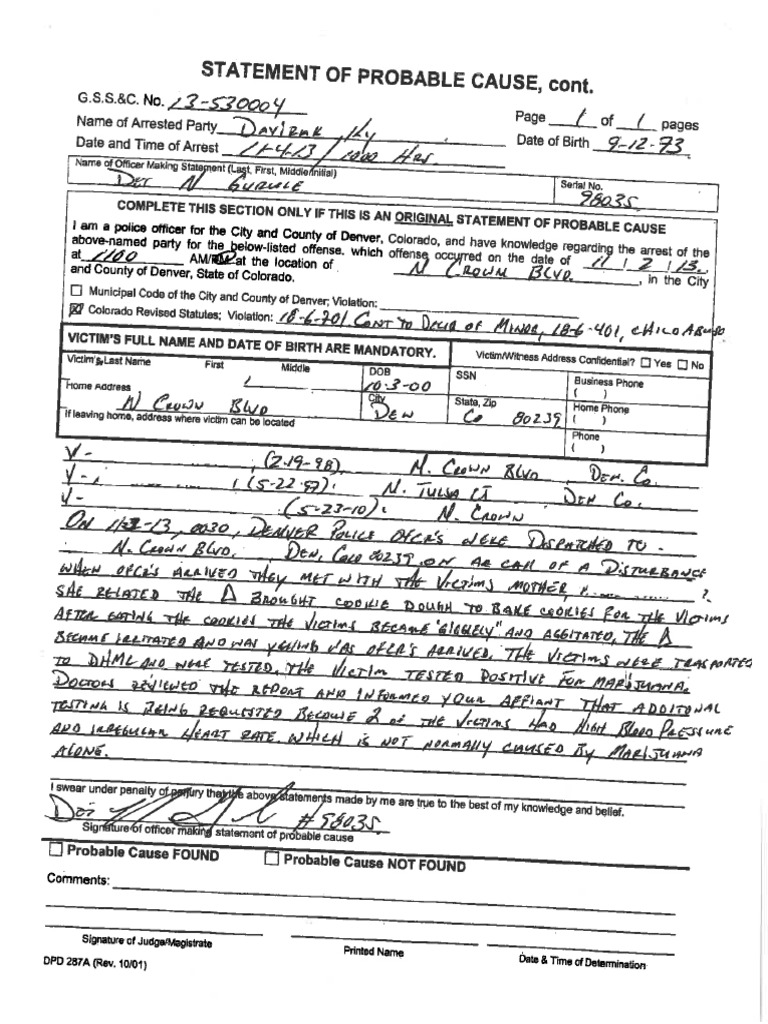 STATEMENT OF PROBABLE CAUSE, cont.
G.S.S.&C. No. 13-530004
Page 1 of 1 pages
Name of Arrested Party Davirak Ky
Date of Birth 9-12-73
Date and Time of Arrest 11-4-13 / 1000 Hrs.
Name of Officer Making Statement (Last, First, Middle/Initial)
Serial No.
DET N GURULE
98035
COMPLETE THIS SECTION ONLY IF THIS IS AN ORIGINAL STATEMENT OF PROBABLE CAUSE
I am a police officer for the City and County of Denver, Colorado, and have knowledge regarding the arrest of the
above-named party for the below-listed offense. which offense occurred on the date of 11 | 2 | 13.
at 1100 AM/PM at the location of N CROWN BLVD. , in the City
and County of Denver, State of Colorado.
Municipal Code of the City and County of Denver; Violation:
Colorado Revised Statutes; Violation: 18-6-701 CONT TO DELIQ OF MINOR, 18-6-401, CHILD ABUSE
VICTIM'S FULL NAME AND DATE OF BIRTH ARE MANDATORY.
Victim/Witness Address Confidential? Yes No
Victim's Last Name First Middle DOB SSN Business Phone
10-3-00 ( )
Home Address City State, Zip Home Phone
N CROWN BLVD DEN CO 80239 ( )
If leaving home, address where victim can be located
Phone
( )
V- , (2-19-98), N. CROWN BLVD, DEN. CO.
V- , (5-22-97): N. TULSA CT DEN CO.
V- (5-23-10): N. CROWN
ON 11-2-13, 0030, DENVER POLICE OFCR'S WERE DISPATCHED TO
N. CROWN BLVD, DEN, COLO 80239 ON A CALL OF A DISTURBANCE
WHEN OFCR'S ARRIVED THEY MET WITH THE VICTIMS MOTHER,
SHE RELATED THE Δ BROUGHT COOKIE DOUGH TO BAKE COOKIES FOR THE VICTIMS
AFTER EATING THE COOKIES THE VICTIMS BECAME "GIGGELY" AND AGGITATED, THE Δ
BECAME IRRITATED AND WAS YELLING WAS OFCR'S ARRIVED, THE VICTIMS WERE TRASPORTED
TO DHMC AND WERE TESTED, THE VICTIM TESTED POSITIVE FOR MARIJUANA,
DOCTORS REVIEWED THE REPORT AND INFORMED YOUR AFFIANT THAT ADDITONAL
TESTING IS BEING REQUESTED BECOUSE 2 OF THE VICTIMS HAD HIGH BLOOD PRESSURE
AND IRREGULAR HEART RATE. WHICH IS NOT NORMALLY CAUSED BY MARIJUANA
ALONE.
I swear under penalty of perjury that the above statements made by me are true to the best of my knowledge and belief.
Det #98035
Signature of officer making statement of probable cause
Probable Cause FOUND Probable Cause NOT FOUND
Comments:
Signature of Judge/Magistrate Printed Name Date & Time of Determination
DPD 287A (Rev. 10/01)